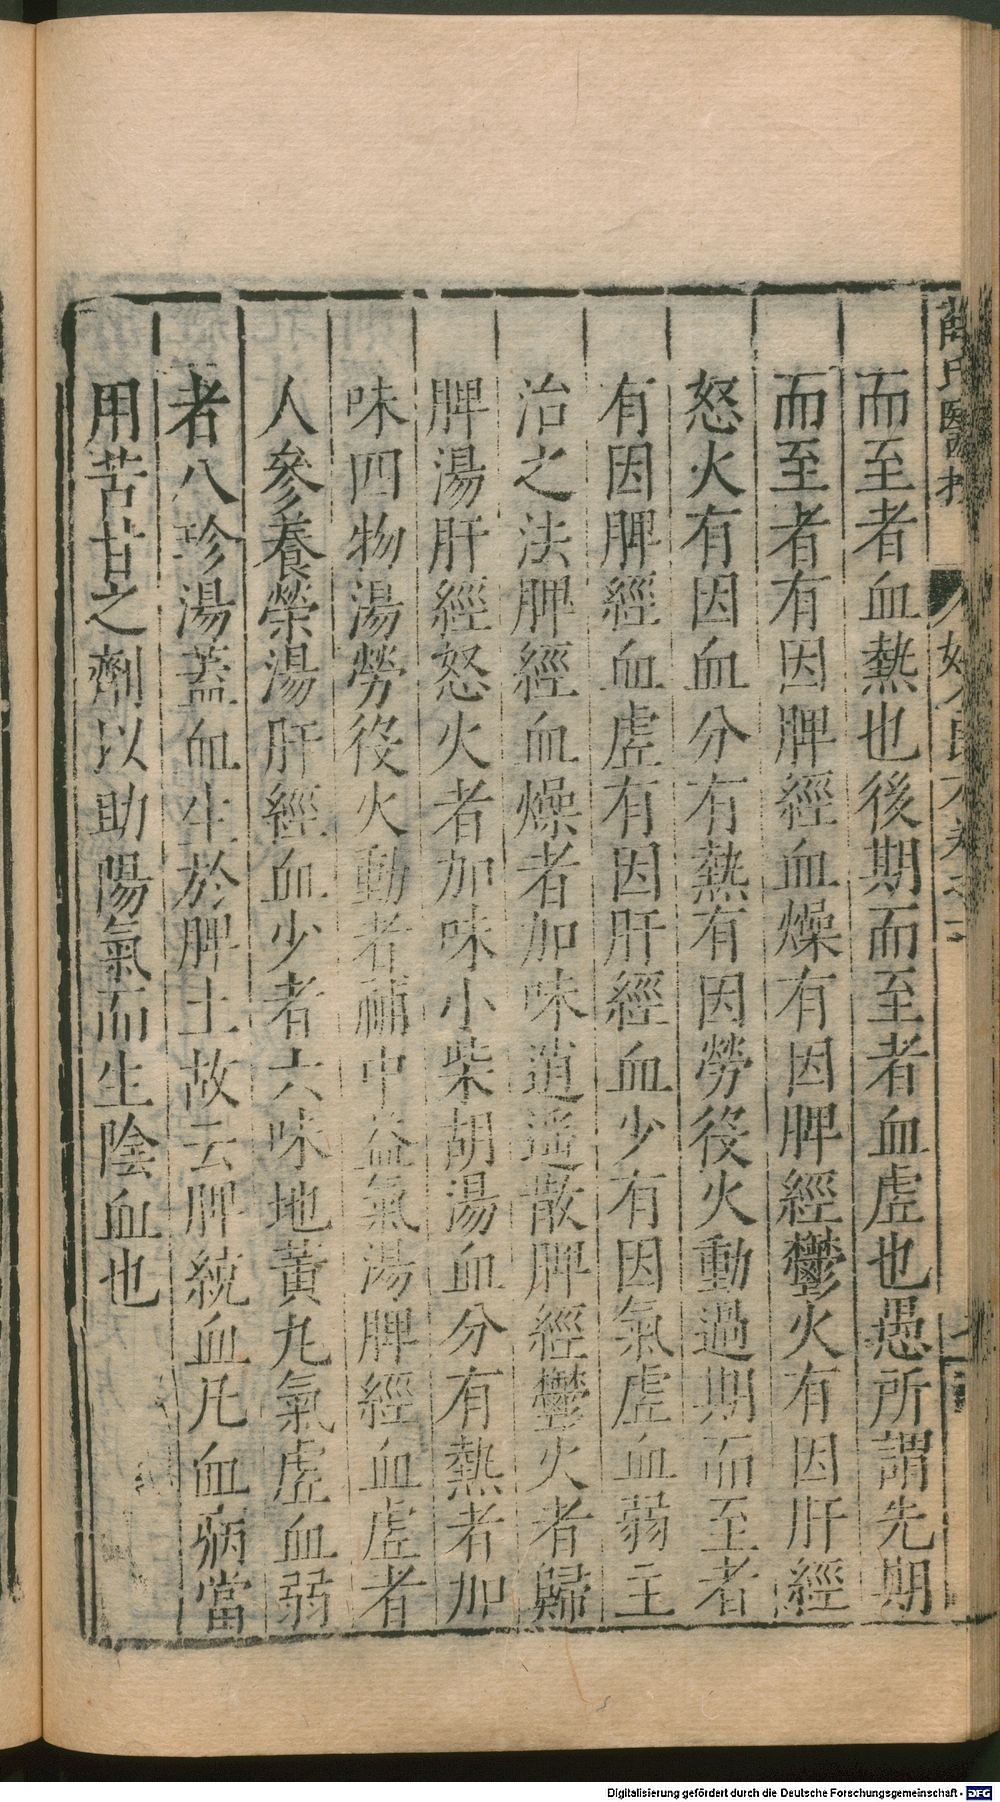 而至者血熱也後期而至者血虛也愚所謂先期
而至者有因脾經血燥有因脾經鬱火有因肝經
怒火有因血分有熱有因勞役火動過期而至者
有因脾經血虛有因肝經血少有因氣虛血弱主
治之法脾經血燥者加味逍遥散脾經鬱火者歸
脾湯肝經怒火者加味小柴胡湯血分有熱者加
味四物湯勞役火動者補中益氣湯脾經血虛者
人參養榮湯肝經血少者六味地黃丸氣虛血弱
者八珍湯蓋血生於脾土故云脾統血凡血病當
用苦甘之劑以助陽氣而生陰血也
Digitalisierung gefördert durch die Deutsche Forschungsgemeinschaft - DFG